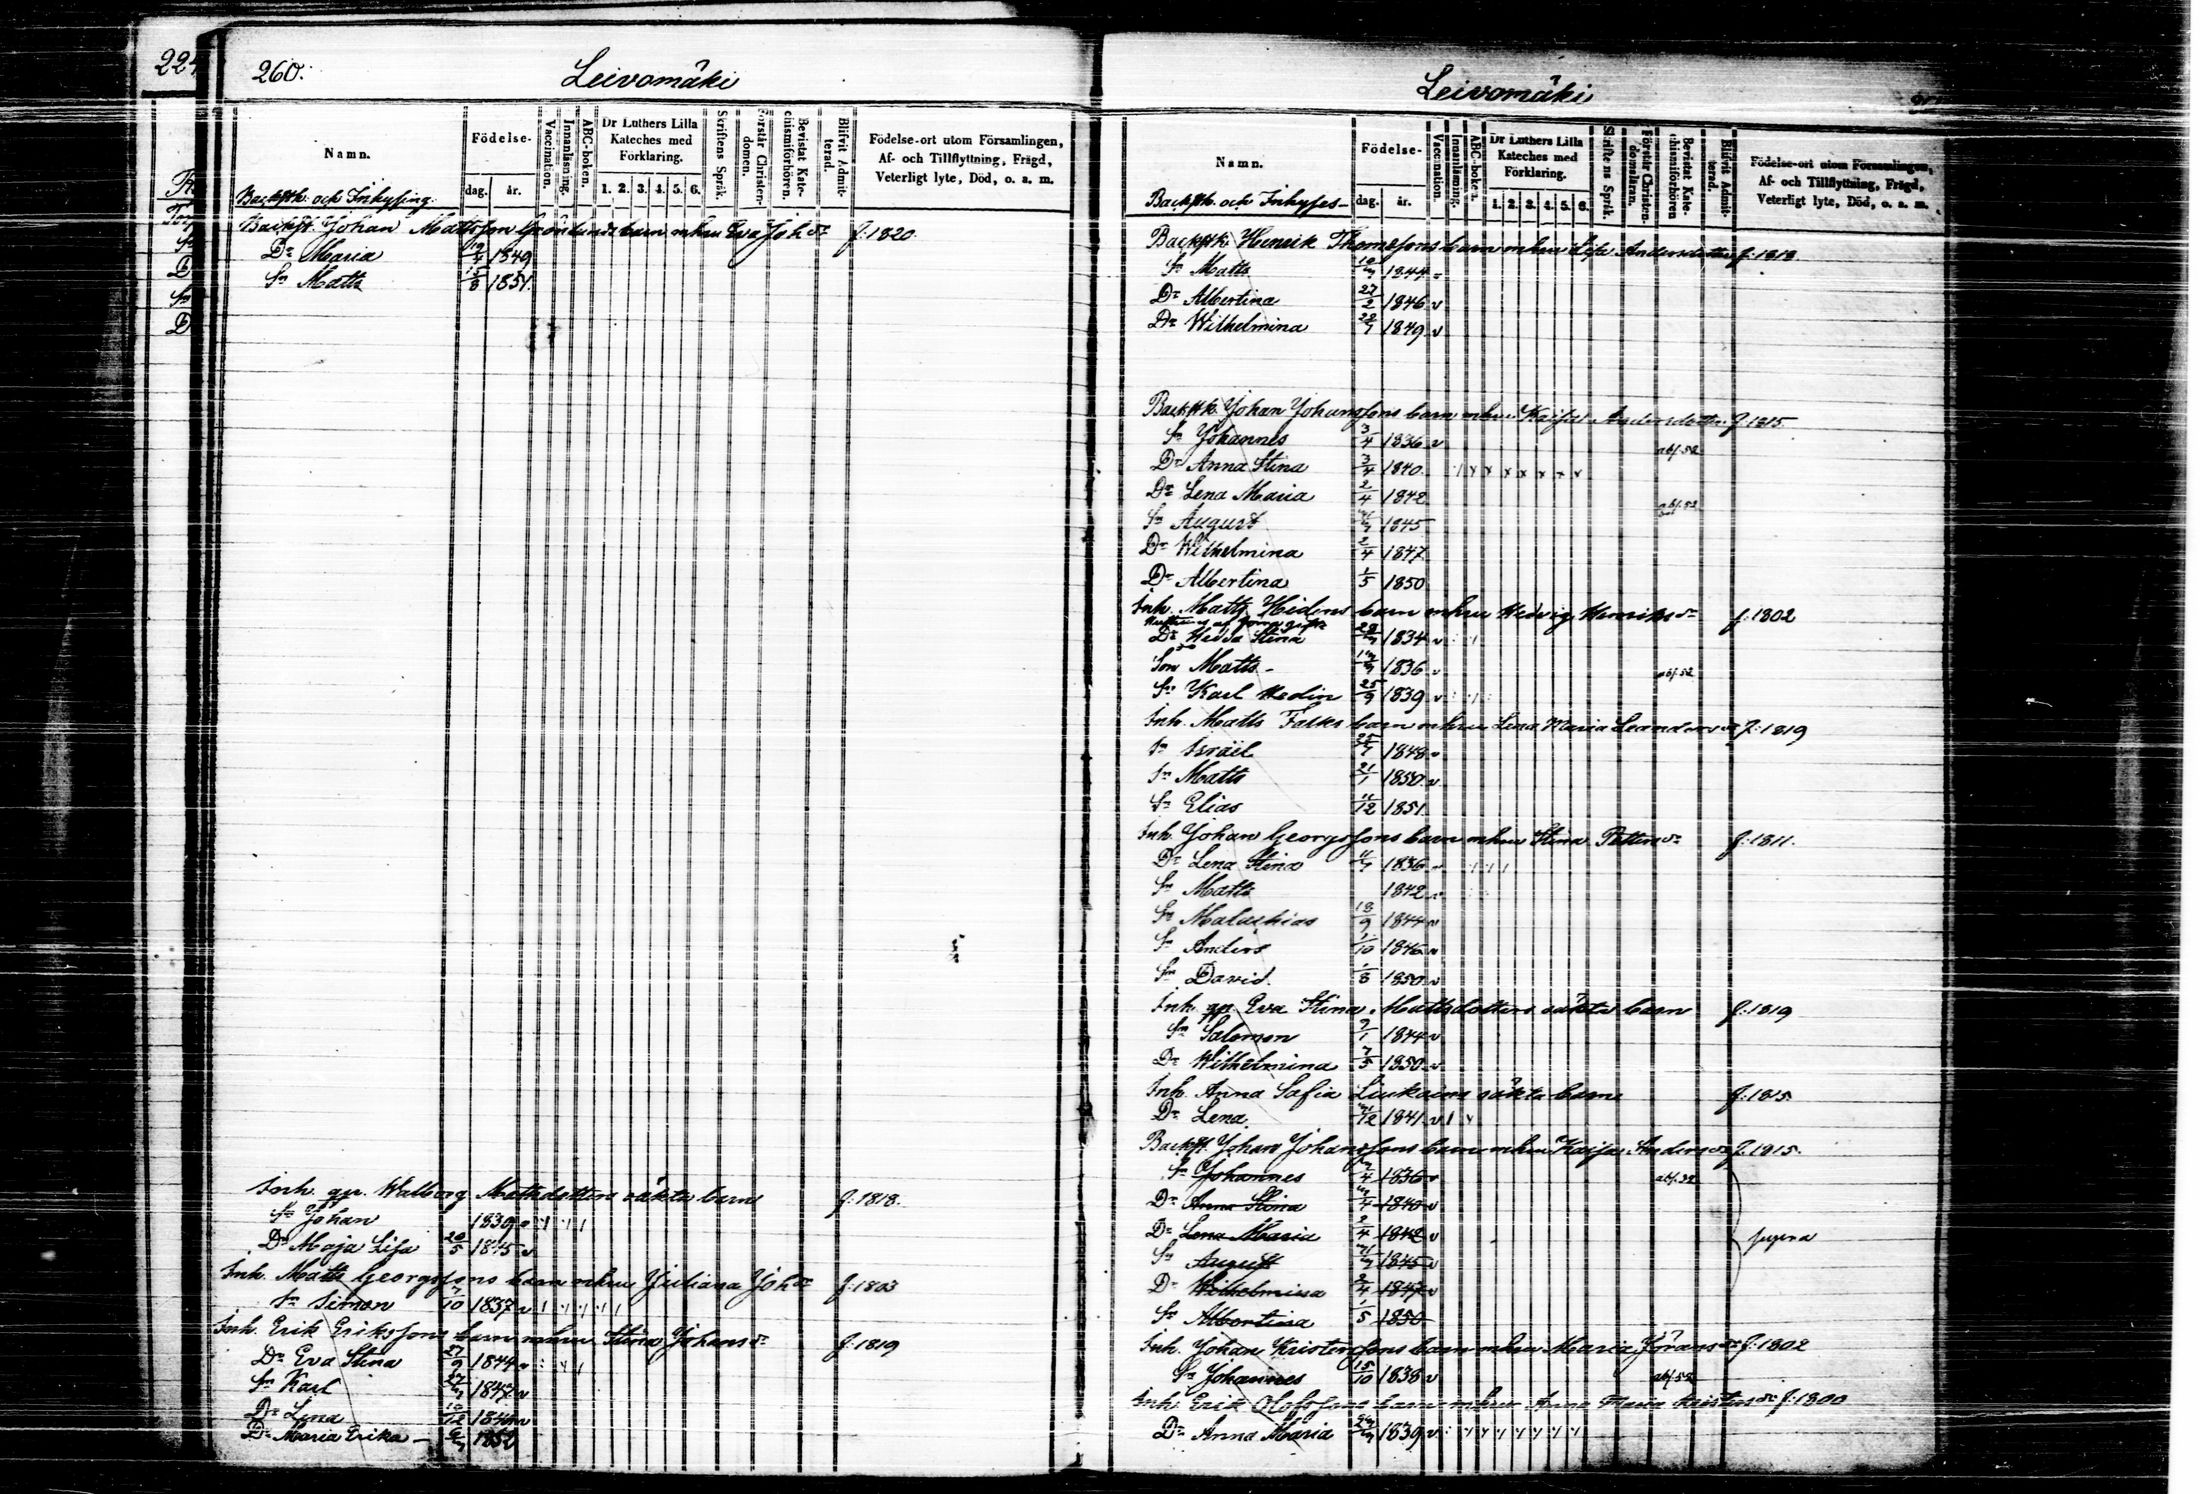 224
260.
Leivomäki
Namn.
Födelse-
dag. år.
Vaccination.
Innanläsning.
ABC-boken.
Dr Luthers Lilla Kateches med Förklaring.
1. 2. 3. 4. 5. 6.
Skriftens Språk.
Förstår Christendomen.
Bevistat Katechismiförhören.
Blifvit Admitterad.
Födelse-ort utom Församlingen, Af- och Tillflyttning, Frägd, Veterligt lyte, Död, o. a. m.
Backstk. och Inhysing.
Backst. Johan Mattsson Grönlunds barn m hu Eva Joh dr f. 1820.
Dr Maria 1849
Sn Matts 1851.
Inh. qv. Walborg Mattsdotters oäkta barn f. 1818.
Sn Johan 1839 v
Dr Maja Lisa 20/5 1845 v
Inh. Matts Georgssons barn m hu Juliana Joh dr f. 1803
Sn Simon 7/10 1837 v
Inh. Erik Erikssons barn m hu Stina Johans dr f. 1819
Dr Eva Stina 27/9 1844
Sn Karl 1847 v
Dr Lena
Dr Maria Erika 1852
Leivomäki
Namn.
Födelse-
dag. år.
Vaccination.
Innanläsning.
ABC-boken.
Dr Luthers Lilla Kateches med Förklaring.
1. 2. 3. 4. 5. 6.
Skriftens Språk.
Förstår Christendomsläran.
Bevistat Katechismiförhören
Blifvit Admitterad.
Födelse-ort utom Församlingen, Af- och Tillflyttning, Frägd, Veterligt lyte, Död, o. a. m.
Backstk. och Inhyses
Backstk. Henrik Thomassons barn m hu Lisa Andersdotter f. 1818
Sn Matts 1844
Dr Albertina 27/2 1846 v
Dr Wilhelmina 1849 v
Backstk. Johan Johanssons barn m hu Kaisa Andersdotter f. 1815
Sn Johannes 3/4 1836 v abs. 52
Dr Anna Stina 3/4 1840
Dr Lena Maria 2/4 1842
Sn August 1845 abs. 52
Dr Wilhelmina 2/4 1847
Dr Albertina 1/5 1850
Inh. Matts Hidens barn m hu Hedvig Henriks dr f. 1802
Dr Hedda Stina 1834 v
Son Matts 1836 v abs. 52
Sn Karl Hedin 25/9 1839 v
Inh. Matts Falks barn m hu Lena Maria Leanders dr f. 1819
Sn Israël 1848
Sn Matts 21/1 1850 v
Sn Elias 11/12 1851
Inh. Johan Georgssons barn m hu Stina Petters dr f. 1811.
Dr Lena Stina 1836
Sn Matts 1842
Sn Malachias 18/9 1844 v
Sn Anders 1/10 1846
Sn David 1/8 1850 v
Inh. qv. Eva Stina Mattsdotters oäkta barn f. 1819
Sn Salomon 1844 v
Dr Wilhelmina 7/5 1850
Inh. Anna Safia Liukains oäkta barn f. 1815
Dr Lena 1841 v
Backst. Johan Johanssons barn m hu Kaisa Anders dr f. 1815.
Sn Johannes 1836 v
Dr Anna Stina 1840 v
Dr Lena Maria 2/4 1842 v
Sn August 1845 v
Dr Wilhelmina 2/4 1847 v
Sn Albertina 1/5 1850
Inh. Johan Kristerssons barn m hu Maria Jörans dr f. 1802
Sn Johannes 15/10 1838 v abs. 52
Inh. Erik Olofssons barn m hu Anna Maria Kristers dr f. 1800
Dr Anna Maria 1839 v